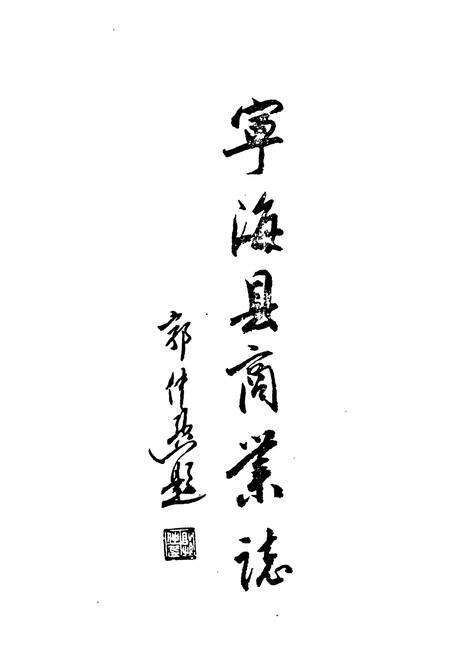 寧海县商業誌
郭仲選題